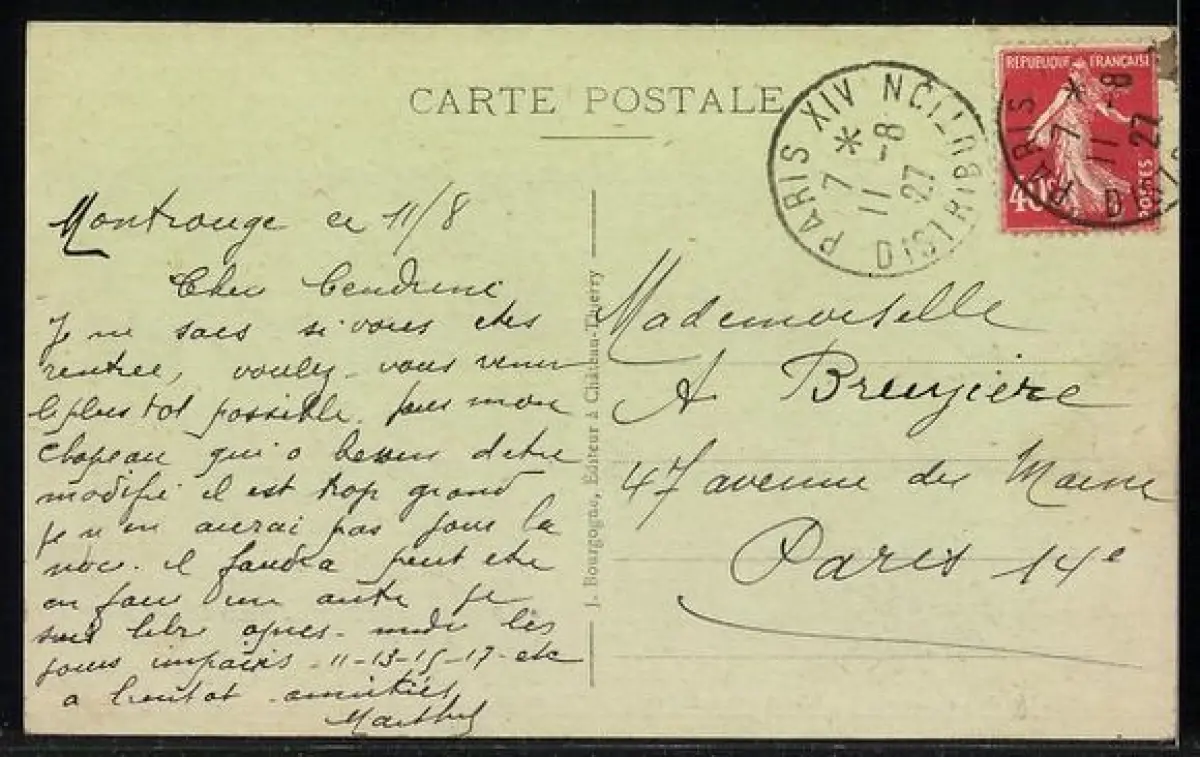 CARTE POSTALE
REPUBLIQUE FRANÇAISE
40c
POSTES
PARIS XIV DISTRIBUTION
7 * 11 -8 27
PARIS
7 * 11 -8 27
DIST
Montrouge ce 11/8
Cher
Je ne sais si vous etes
rentree, voulez-vous venir
le plus tot possible pour mon
chapeau qui a besoin d'etre
modifié il est trop grand
je n'en aurai pas pour la
noce. il faudra peut etre
en faire un autre je
suis libre apres-midi les
jours impairs -11-13-15-17- etc
a bientot amitiés
Mademoiselle
A Bruyière
47 avenue du Maine
Paris 14e
J. Bourgogne, Éditeur à Château-Thierry